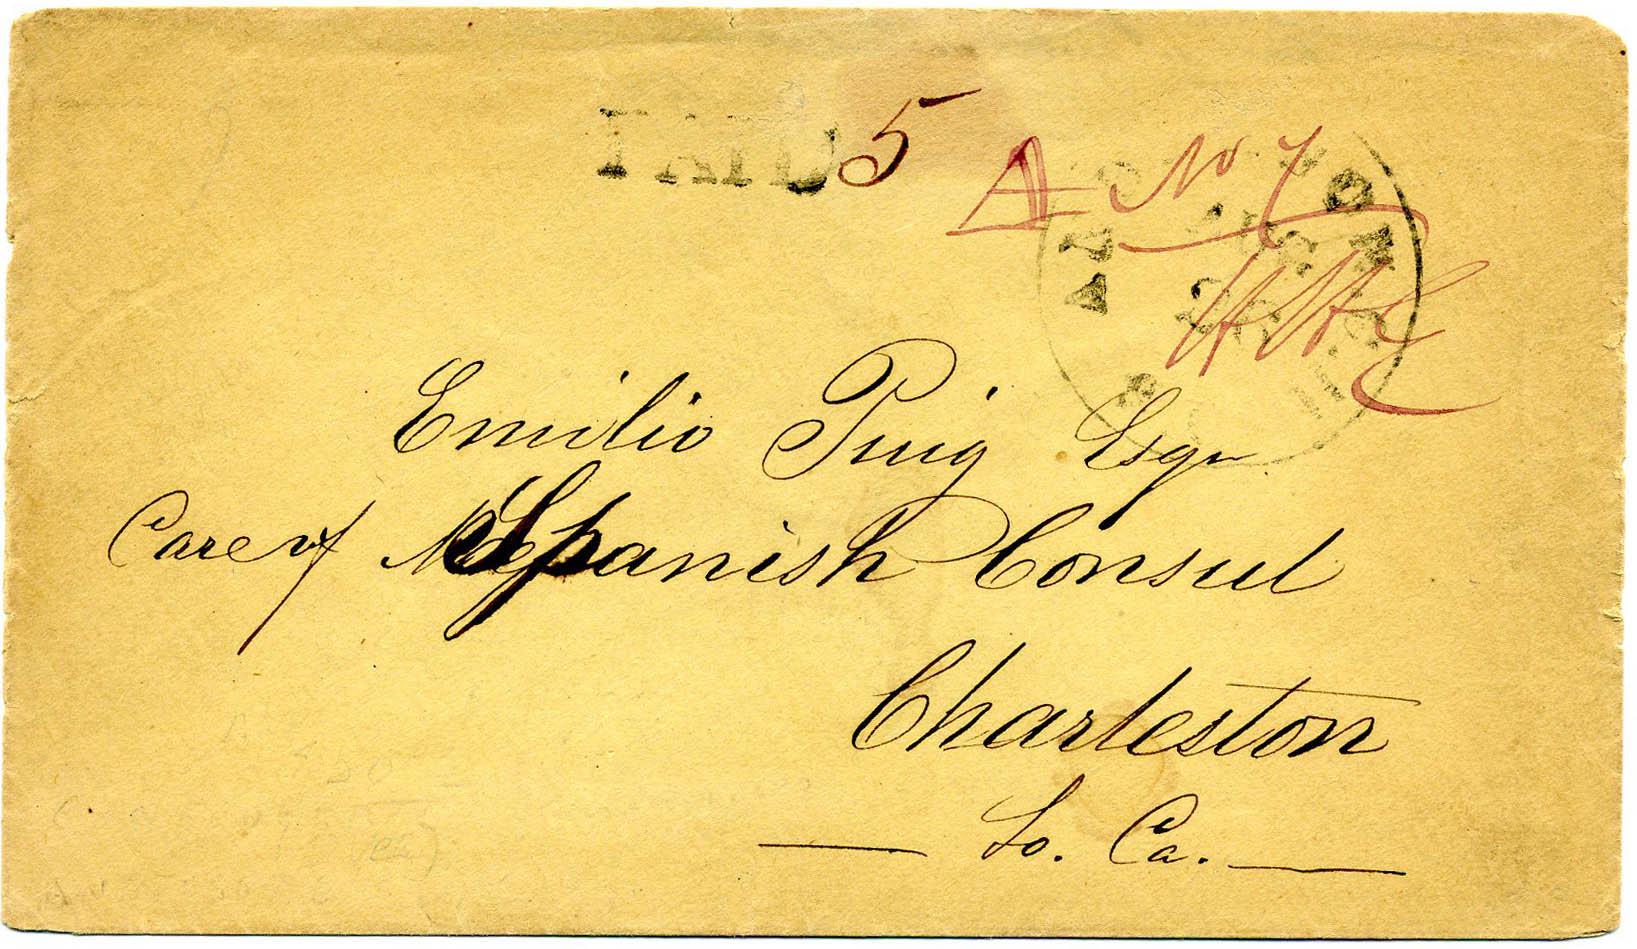 PAID 5
A No 7
Emilio Puig Esqr
Care of Spanish Consul
Charleston
So. Ca.